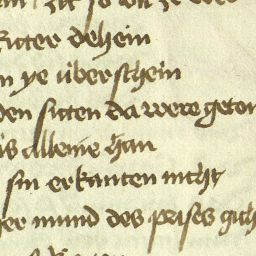 zit so vil ze
Ritter dehein
n ye überschein
den sitten da were geton
is alleine han
sin erkanten nicht
er mund des prises gich